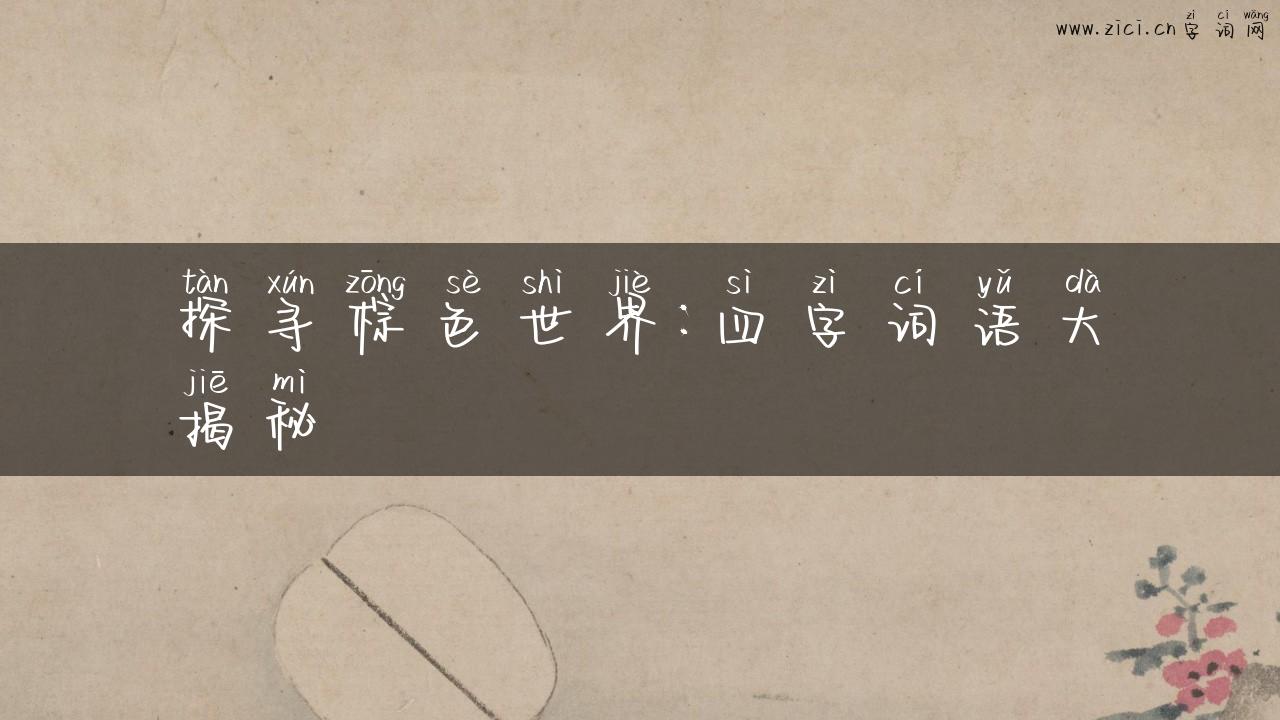 zì cí wǎng
www.zici.cn字词网
tàn xún zōng sè shì jiè sì zì cí yǔ dà
探寻棕色世界:四字词语大
jiē mì
揭秘